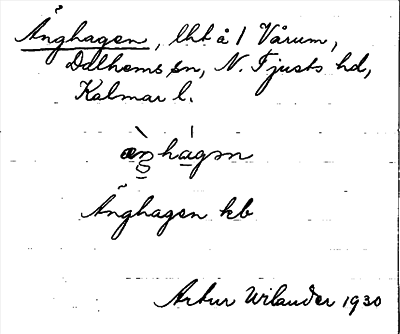 Änghagen, lht å 1 Vårum,
Dalhems sn, N. Tjusts hd,
Kalmar l.
æ̀ŋhágən
Änghagen kb
Artur Wilander 1930